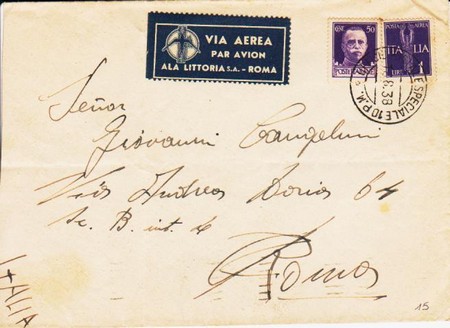 VIA AEREA
PAR AVION
ALA LITTORIA S.A. - ROMA
CENT. 50
POSTE ITALIANE
POSTA AEREA
ITALIA
LIRE 1
ESPECIALE 10 P.M.
8.38
Señor
Giovanni Cangelini
Via Andrea Doria 64
Sc. B. int. 4
Roma
ITALIA
15